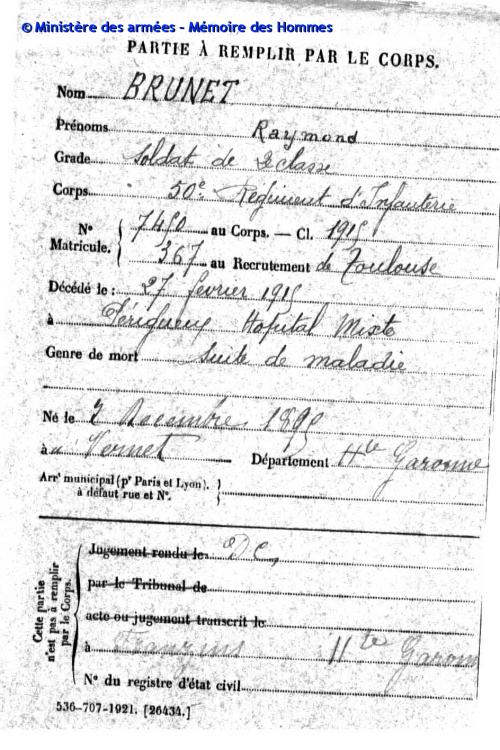 © Ministère des armées - Mémoire des Hommes
PARTIE À REMPLIR PAR LE CORPS.
Nom BRUNET
Prénoms Raymond
Grade Soldat de 2e classe
Corps 50e Regiment d'Infanterie
N° Matricule. { 7450 au Corps. — Cl. 1915
367 au Recrutement de Toulouse
Décédé le : 27 février 1915
à Périgueux Hopital Mixte
Genre de mort suite de maladie
Né le 2 Décembre 1895
à Vernet Département Hte Garonne
Arrt municipal (pr Paris et Lyon), à défaut rue et N°. }
Cette partie n'est pas à remplir par le Corps. {
Jugement rendu le
par le Tribunal de
acte ou jugement transcrit le
à Hte Garonne
N° du registre d'état civil
536-707-1921. [26434.]